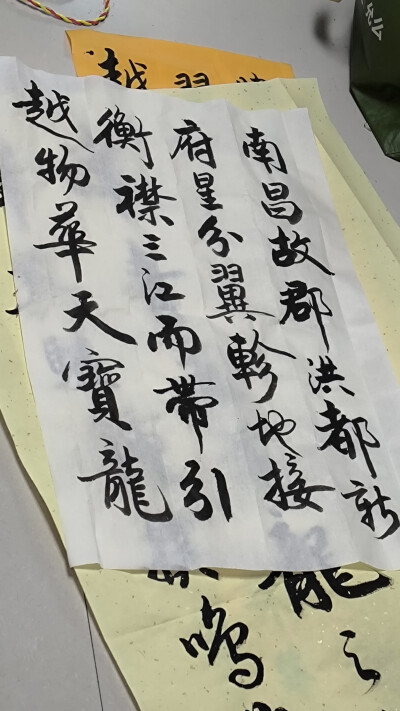 南昌故郡洪都新
府星分翼軫地接
衡襟三江而帶引
越物華天寶龍
龍之
鳴
越